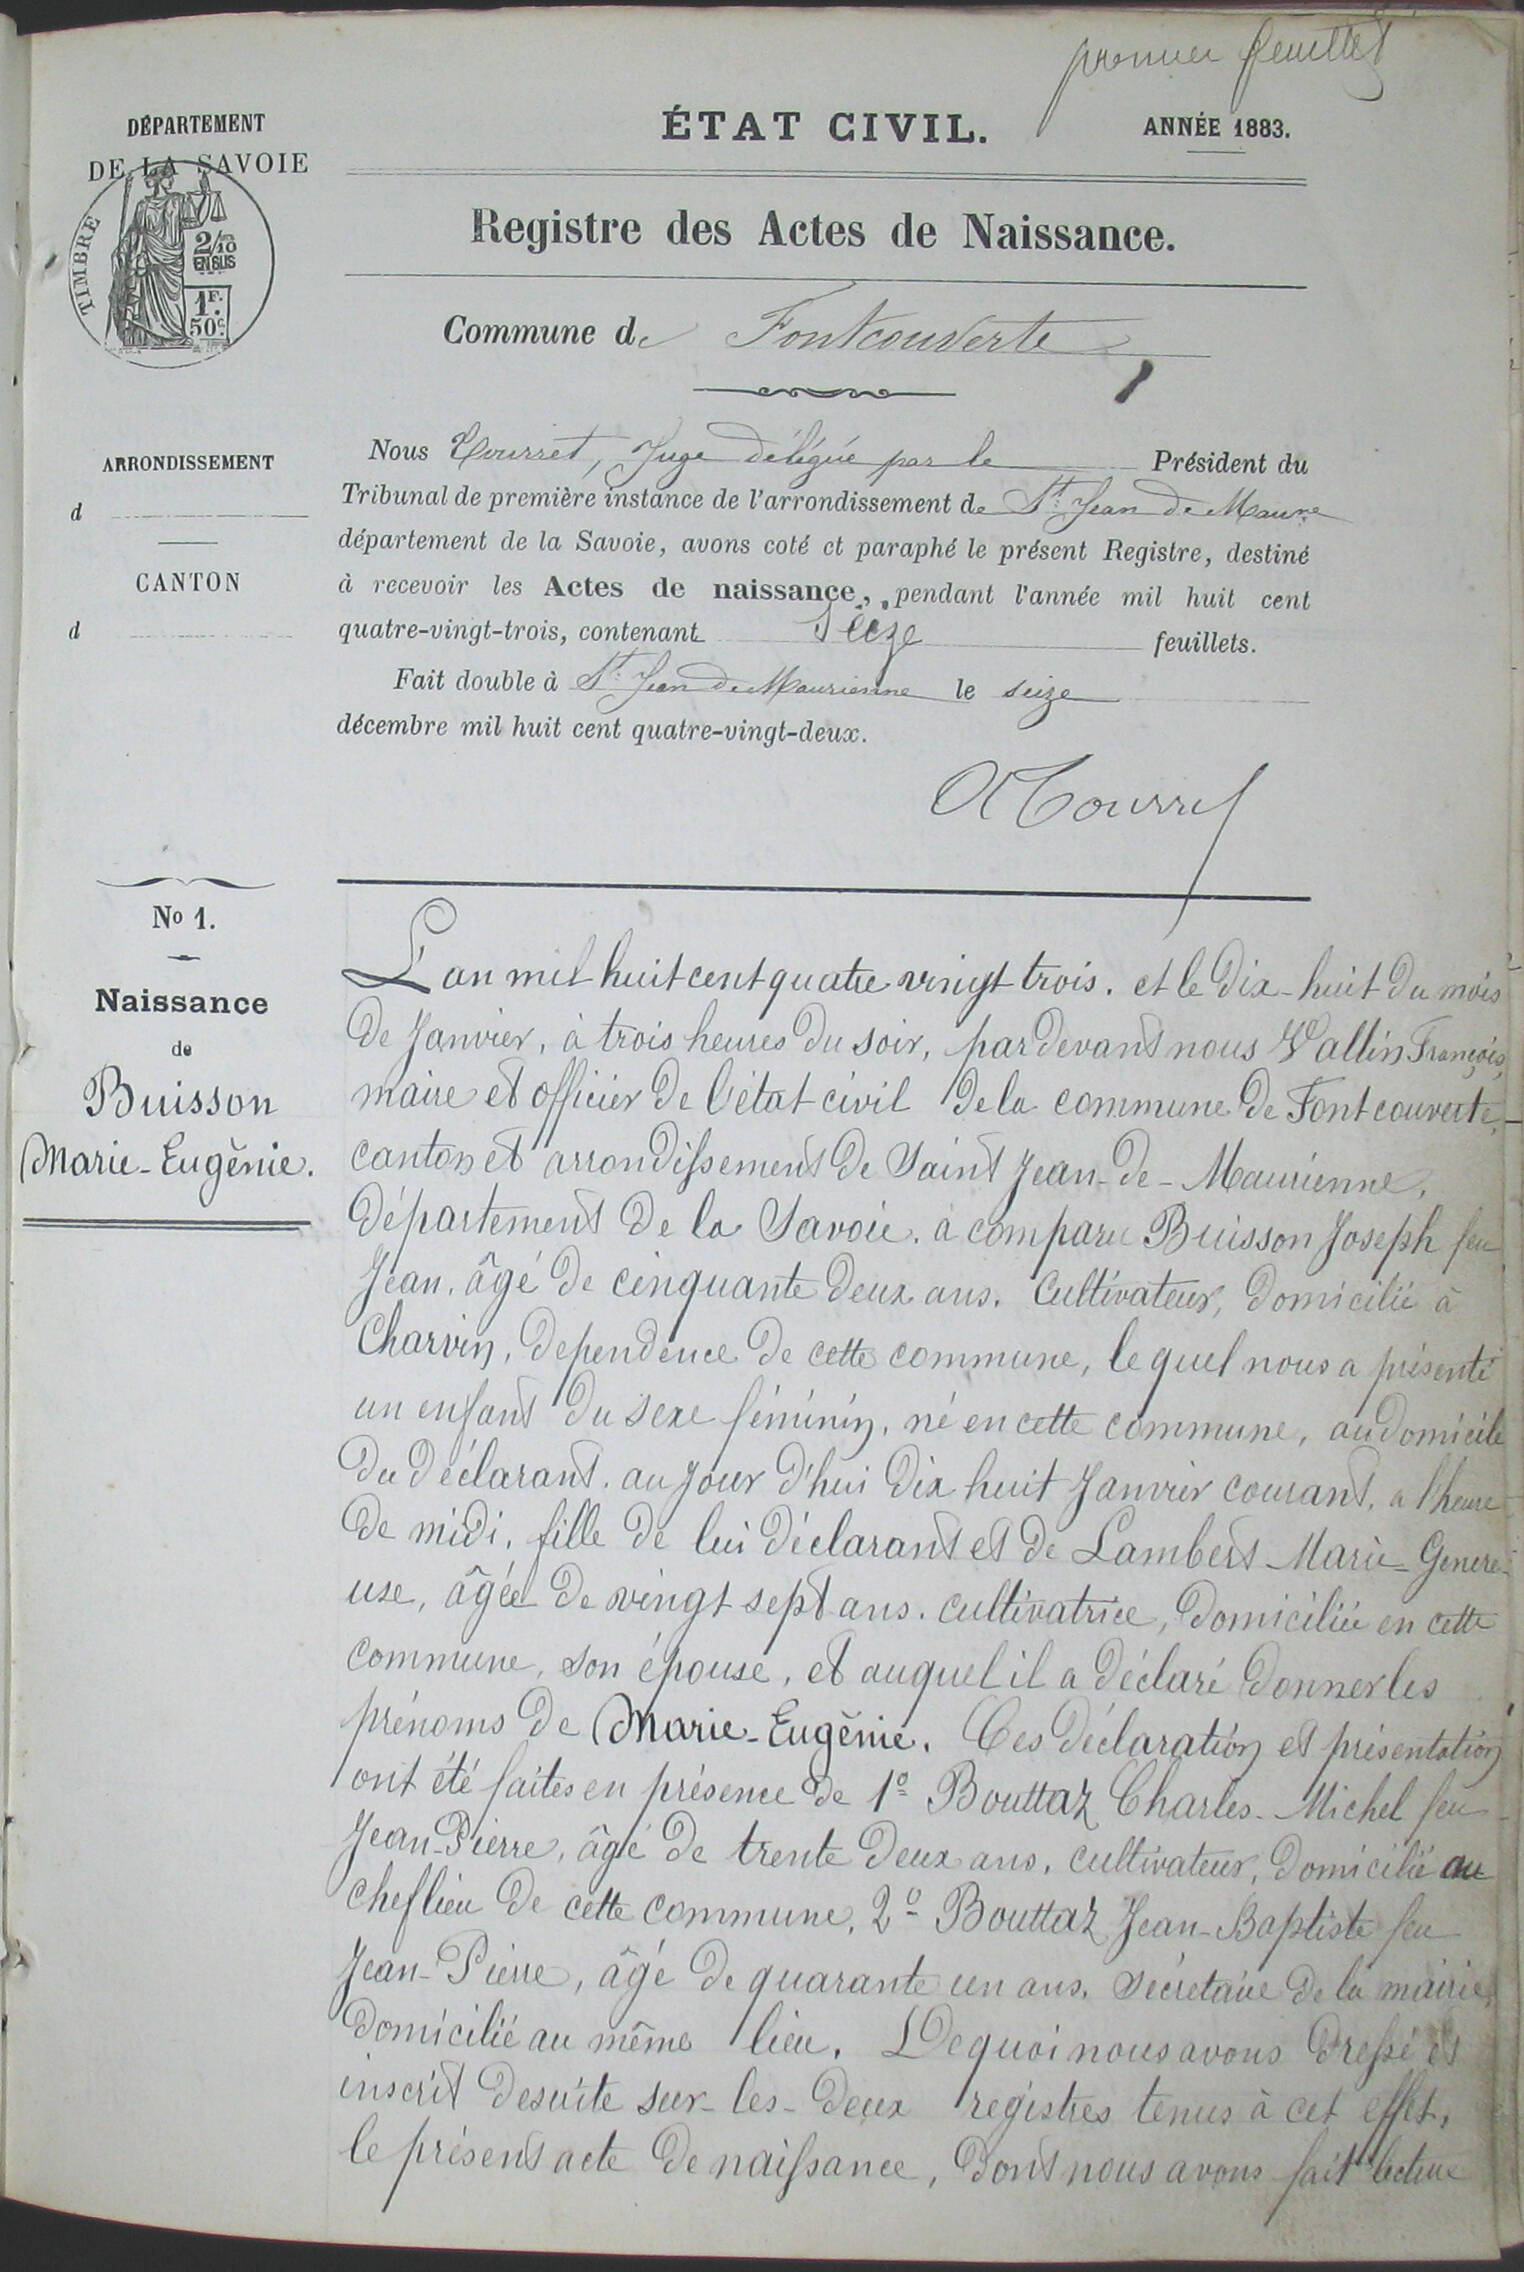 premier feuillet
DÉPARTEMENT
DE LA SAVOIE
TIMBRE
2/10
EN SUS
1F.
50c.
ÉTAT CIVIL.
ANNÉE 1883.
Registre des Actes de Naissance.
Commune de Fontcouverte
1
ARRONDISSEMENT
d
CANTON
d
Nous Tourret, Juge délégué par le Président du
Tribunal de première instance de l'arrondissement de St. Jean de Maurne
département de la Savoie, avons coté et paraphé le présent Registre, destiné
à recevoir les Actes de naissance, pendant l'année mil huit cent
quatre-vingt-trois, contenant seize feuillets.
Fait double à St. Jean de Maurienne le seize
décembre mil huit cent quatre-vingt-deux.
Tourret
No 1.
Naissance
de
Buisson
Marie-Eugénie.
L'an mil huit cent quatre vingt trois. et le dix-huit du mois
de Janvier, à trois heures du soir, par devant nous Vallin François,
maire et officier de l'état civil de la commune de Fontcouverte,
canton et arrondissement de Saint Jean-de-Maurienne,
département de la Savoie. a comparu Buisson Joseph feu
Jean, âgé de cinquante deux ans. Cultivateur, domicilié à
Charvin, dependence de cette commune, le quel nous a présenté
un enfant du sexe féminin, né en cette commune, au domicile
du déclarant. au jour d'hui dix huit Janvier courant, a l'heure
de midi, fille de lui déclarant et de Lambert Marie-Genere-
use, âgée de vingt sept ans. cultivatrice, domiciliée en cette
commune, son épouse, et auquel il a déclaré donner les
prénoms de Marie-Eugénie. Ces déclaration et présentation
ont été faites en présence de 1o Bouttaz Charles-Michel feu
Jean-Pierre, âgé de trente deux ans, cultivateur, domicilié au
cheflieu de cette commune, 2o Bouttaz Jean-Baptiste feu
Jean-Pierre, âgé de quarante un ans. sécretaire de la mairie,
domicilié au même lieu. De quoi nous avons dressé et
inscrit desuite sur-les-deux registres tenus à cet effet,
le présent acte de naissance, dont nous avons fait lecture